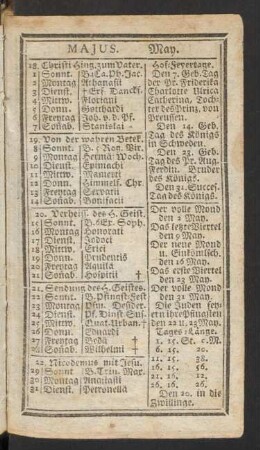 MAJUS. May.
18. Christi Hing. zum Vater.
1 Sonnt.
2 Montag Athanasii
3 Dienst.
4 Mittw. Floriani
5 Donn. Gotthardi
6 Freytag Joh. v. d. Pf.
7 Soñab. Stanislai
19. Von der wahren Betek
8 Sonnt.
9 Montag
10 Dienst.
11 Mittw. Mamerti
12 Donn.
13 Freytag Servatii
14 Soñab. Bonifacii
20. Verheiss. des H. Geist.
15 Sonnt.
16 Montag Honorati
17 Dienst.
18 Mittw. Erici
19 Donn. Prudentis
20 Freytag Aquila
21 Soñab. Hospitii †
21. Sendung des H. Geistes.
22 Sonnt.
23 Montag
24 Dienst.
25 Mittw.
26 Donn. Eduardi
27 Freytag Beda †
28 Soñab. Wilhelmi †
22. Nicodemus mit Jesu.
29 Sonnt B. Trin. Mar.
30 Montag
31 Dienst. Petronella
Hof-Feyertage.
Den 7. Geb. Tag
der Pr. Friderika
Charlotte Ulrica
Catherina, Toch-
ter des Prinz, von
Preussen.
Den 14. Geb.
Tag des Königs
in Schweden.
Den 23. Geb.
Tag des Pr. Aug.
Ferdin. Bruder
des Königs.
Den 31. Succes.
Tag des Königs.
Der volle Mond
den 2 May.
Das letzte Viertel
den 9 May.
Der neue Mond
den 16 May.
Das erste Viertel
den 23 May.
Der volle Mond
den 31 May.
Die Juden fey-
ern ihre Pfingsten
den 22 u. 23 May.
Tages-Länge.
1. 15. St. 6. M.
6. 15. 20.
11. 15. 38.
16. 15. 56.
21. 16. 12.
26. 16. 26.
Den 20. in die
Zwillinge.